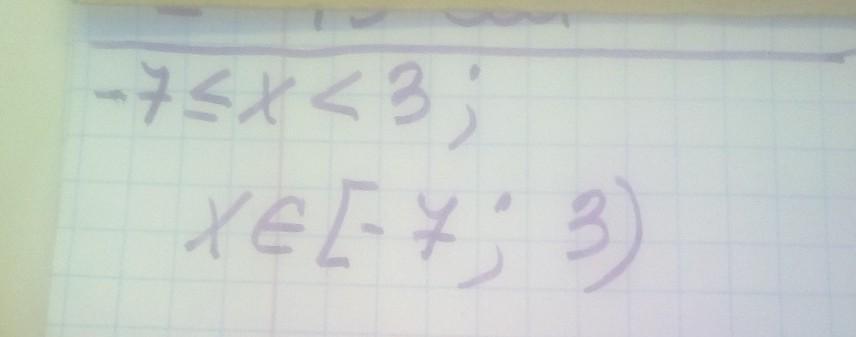 -7 ≤ x < 3 ;
x ∈ [-7 ; 3)